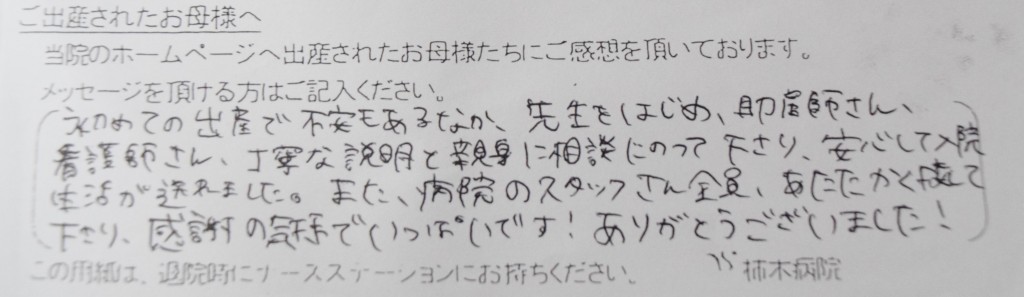 ご出産されたお母様へ
当院のホームページへ出産されたお母様たちにご感想を頂いております。
メッセージを頂ける方はご記入ください。
初めての出産で不安もあるなか、先生をはじめ、助産師さん、
看護師さん、丁寧な説明と親身に相談にのって下さり、安心して入院
生活が送れました。また、病院のスタッフさん全員、あたたかく接して
下さり、感謝の気持でいっぱいです!ありがとうございました!
この用紙は、退院時にナースステーションにお持ちください。 柿木病院